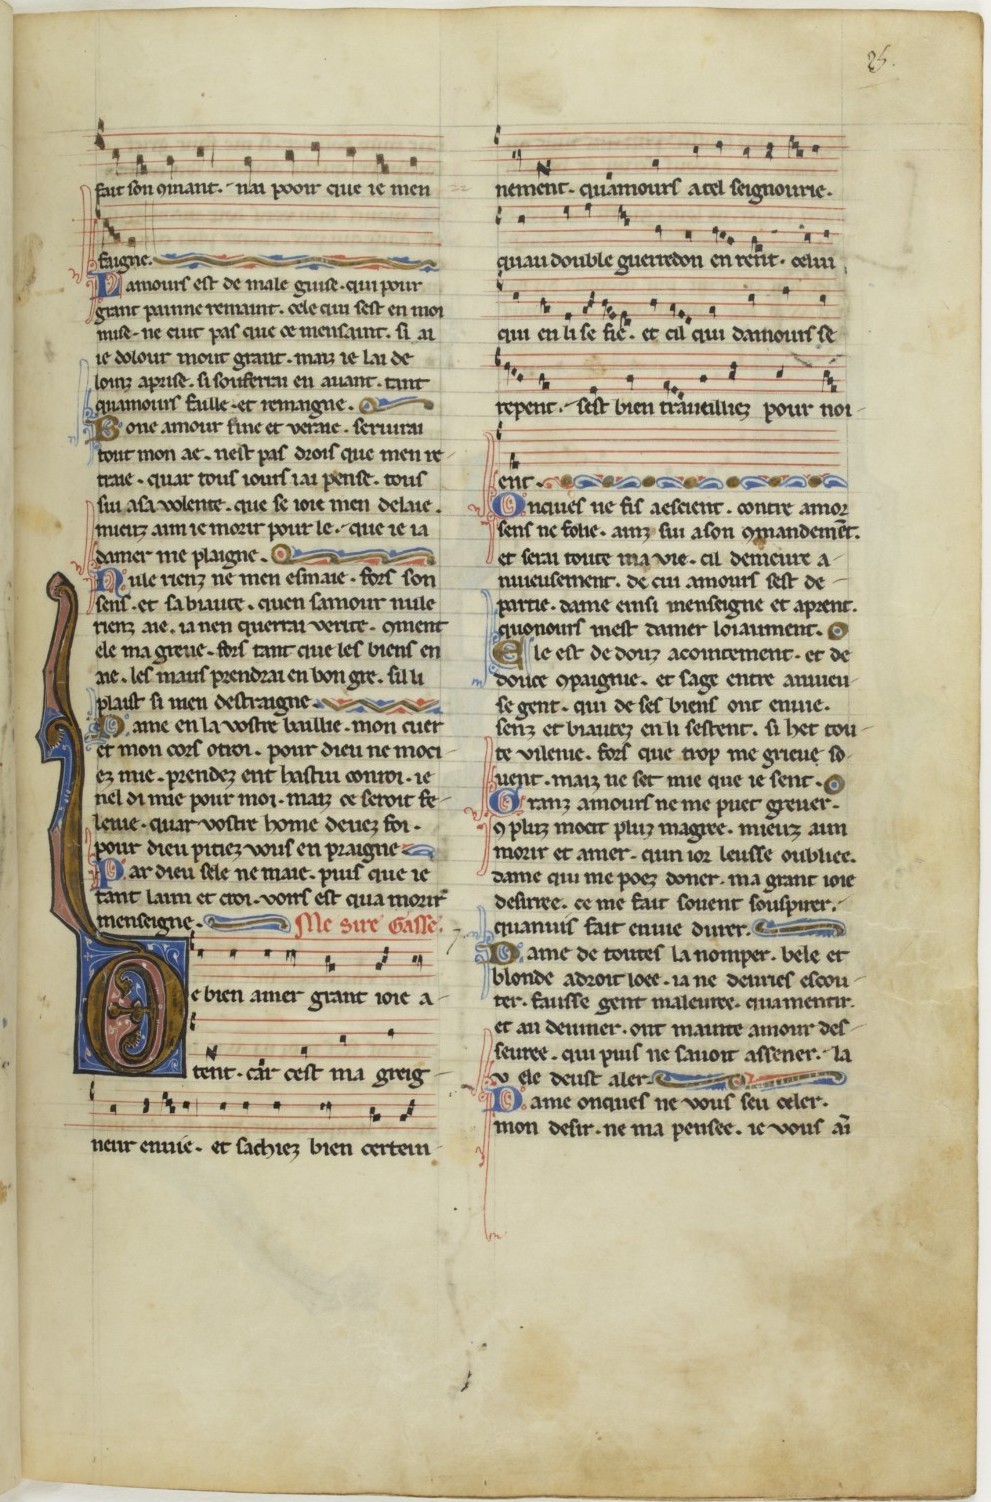 25.
fait son ꝯmant. nai pooir que ie men
faigne.
Lamours est de male guise. qui pour
grant painne remaint. cele qui sest en moi
mise. ne cuit pas que ce mensaint. si ai
ie dolour mout grant. maiz ie lai de
loinz aprise. si souferrai en auant. tant
quamours faille. et remaigne.
Bone amour fine et veraie. seruirai
tout mon ae. nest pas drois que men re
traie. quar tous iours iai pense. tous
sui a sa volente. que se ioie men delaie.
mieuz aim ie morir pour le. que ie ia
damer me plaigne.
Nule rienz ne men esmaie. fors son
sens. et sa biaute. quen samour nule
rienz aie. ia nen querrai verite. ꝯment
ele ma greue. fors tant que les biens en
aie. les maus prendrai en bon gre. sil li
plaist si men destraigne.
Dame en la vostre baillie. mon cuer
et mon cors otroi. pour dieu ne moci
ez mie. prendez ent hastiu conroi. ie
nel di mie pour moi. maiz ce seroit fe
lenie. quar vostre home deuez foi.
pour dieu pitiez vous en praigne
Par dieu bele ne maie. puis que ie
tant laim et croi. voirs est qua morir
menseigne. Me sire Gasse.
De bien amer grant ioie a
tent. car cest ma greig
neur enuie. et sachiez bien certein
nement. quamours a tel seignourie.
quau double guerredon en rent. celui
qui en li se fie. et cil qui damours se
repent. sest bien traueilliez pour noi
ent.
Onques ne fis a escient. contre amor
sens ne folie. ainz sui a son ꝯmandemēt.
et serai toute ma vie. cil demeure a
nuieusement. de cui amours sest de
partie. dame einsi menseigne et aprent.
quonours mest damer loiaument.
Ele est de douz acointement. et de
douce ꝯpaignie. et sage entre anuieu
se gent. qui de ses biens ont enuie.
senz et biautez en li sestent. si het tou
te vilenie. fors que trop me grieue so
uent. maiz ne set mie que ie sent.
Granz amours ne me puet greuer.
ꝯ pluz mocit pluz magree. mieuz aim
morir et amer. qun ior leusse oubliee.
dame qui me poez doner. ma grant ioie
desirree. ce me fait souent souspirer.
quanuis fait enuie durer.
Dame de toutes la nomper. bele et
blonde a droit loee. ia ne deuries escou
ter. fausse gent maleuree. qua mentir.
et au deuiner. ont mainte amour des
seuree. qui puis ne sauoit assener. la
v ele deust aler.
Dame onques ne vous seu celer.
mon desir. ne ma pensee. ie vous ai